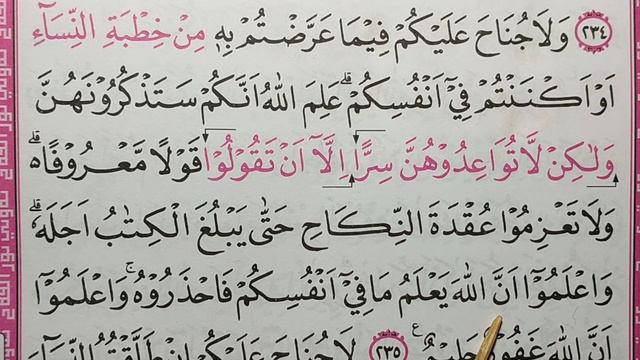 ﴿٢٣٤﴾ وَلَا جُنَاحَ عَلَيْكُمْ فِيْمَا عَرَّضْتُمْ بِهٖ مِنْ خِطْبَةِ النِّسَآءِ
اَوْ اَكْنَنْتُمْ فِيْٓ اَنْفُسِكُمْ ۗ عَلِمَ اللّٰهُ اَنَّكُمْ سَتَذْكُرُوْنَهُنَّ
وَلٰكِنْ لَّا تُوَاعِدُوْهُنَّ سِرًّا اِلَّآ اَنْ تَقُوْلُوْا قَوْلًا مَّعْرُوْفًا ەۗ
وَلَا تَعْزِمُوْا عُقْدَةَ النِّكَاحِ حَتّٰى يَبْلُغَ الْكِتٰبُ اَجَلَهٗ ۗ
وَاعْلَمُوْٓا اَنَّ اللّٰهَ يَعْلَمُ مَا فِيْٓ اَنْفُسِكُمْ فَاحْذَرُوْهُ ۚ وَاعْلَمُوْٓا
اَنَّ اللّٰهَ غَفُوْرٌ حَلِيْمٌ ࣖ ﴿٢٣٥﴾ لَا جُنَاحَ عَلَيْكُمْ اِنْ طَلَّقْتُمُ النِّسَآءَ